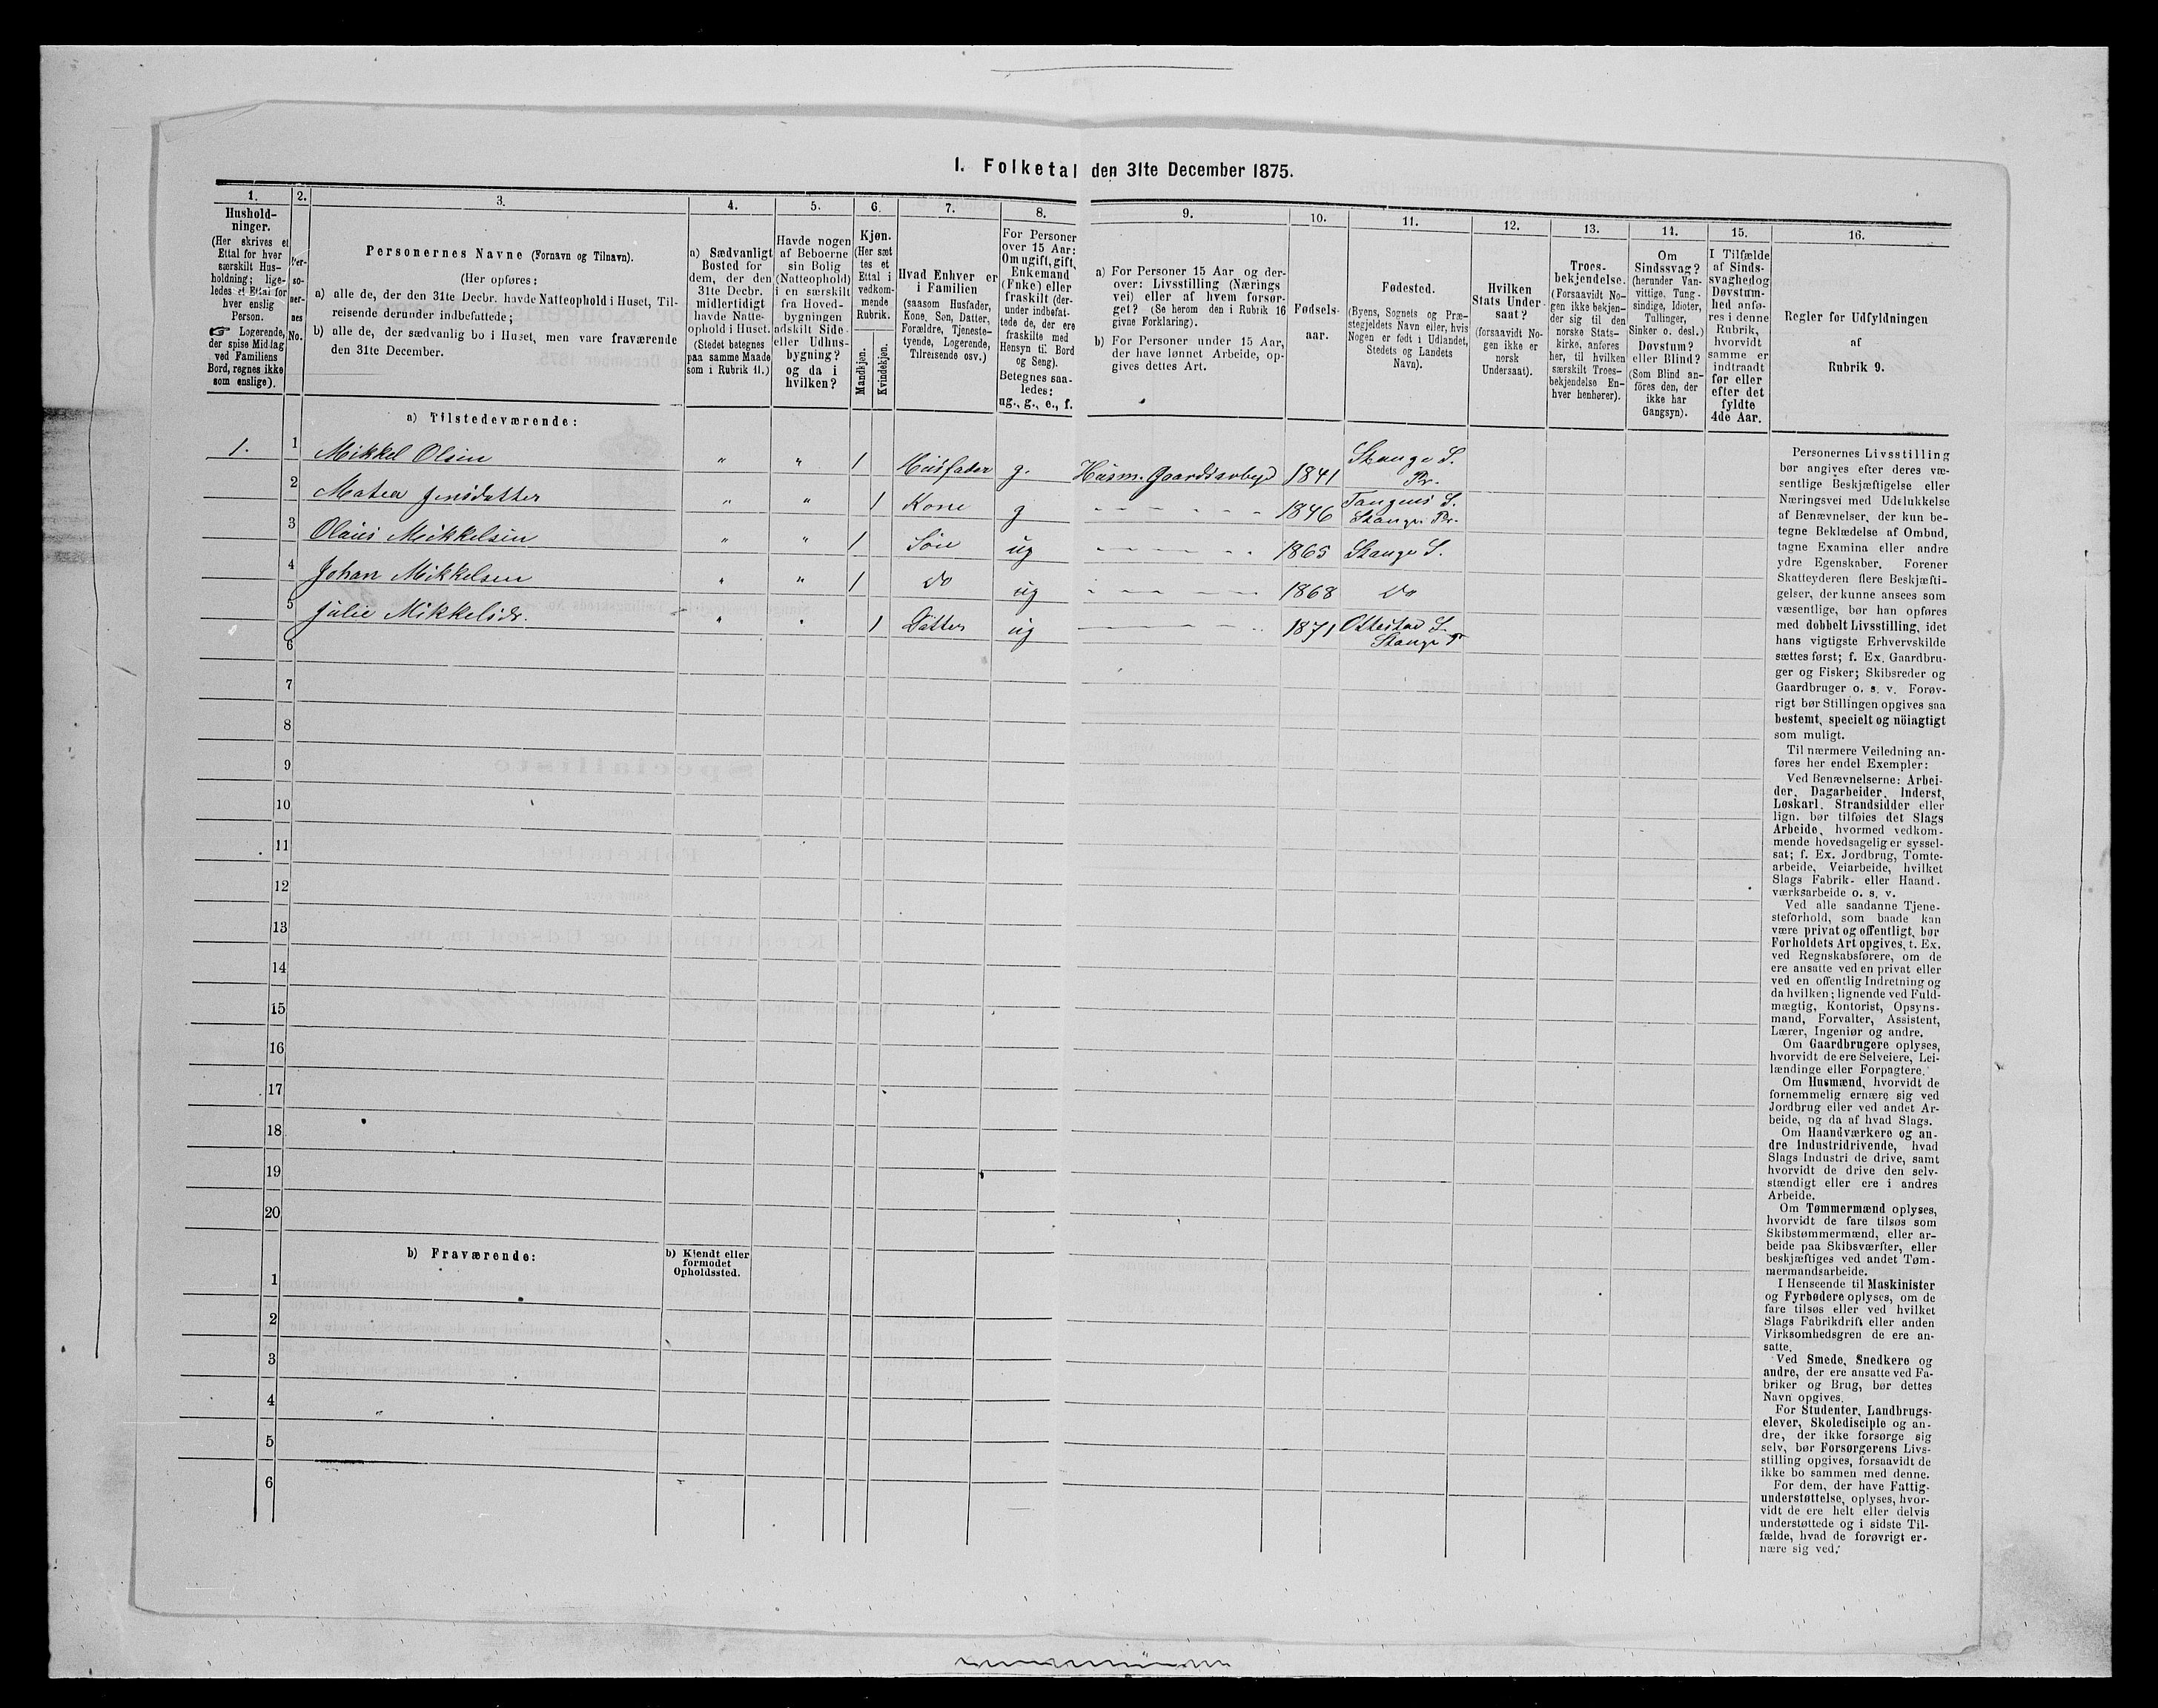 I. Folketal den 31te December 1875.
1. 2. 3. 4. 5. 6. 7. 8. 9. 10. 11. 12. 13. 14. 15. 16.
Hushold-
ninger.
(Her skrives et
Ettal for hver
særskilt Hus-
holdning; lige-
ledes et Ettal for
hver enslig
Person.
☞ Logerende,
der spise Middag
ved Familiens
Bord, regnes ikke
som enslige).
Per-
so-
ner-
nes
No.
Personernes Navne (Fornavn og Tilnavn).
(Her opføres:
a) alle de, der den 31te Decbr. havde Natteophold i Huset, Til-
reisende derunder indbefattede;
b) alle de, der sædvanlig bo i Huset, men vare fraværende
den 31te December.
a) Sædvanligt
Bosted for
dem, der den
31te Decbr.
midlertidigt
havde Natte-
ophold i Huset.
(Stedet betegnes
paa samme Maade
som i Rubrik 11.)
Havde nogen
af Beboerne
sin Bolig
(Natteophold)
i en særskilt
fra Hoved-
bygningen
adskilt Side-
eller Udhus-
bygning?
og da i
hvilken?
Kjøn.
(Her sæt
tes et
Ettal i
vedkom-
mende
Rubrik.
Mandkjøn.
Kvindekjøn.
Hvad Enhver er
i Familien
(saasom Husfader,
Kone, Søn, Datter,
Forældre, Tjeneste-
tyende, Logerende,
Tilreisende osv.)
For Personer
over 15 Aar:
Om ugift, gift,
Enkemand
(Enke) eller
fraskilt (der-
under indbefat-
tede de, der ere
fraskilte med
Hensyn til Bord
og Seng).
Betegnes saa-
ledes:
ug., g., e., f.
a) For Personer 15 Aar og der-
over: Livsstilling (Nærings
vei) eller af hvem forsør-
get? (Se herom den i Rubrik 16
givne Forklaring).
b) For Personer under 15 Aar,
der have lønnet Arbeide, op-
gives dettes Art.
Fødsels-
aar.
Fødested.
(Byens, Sognets og Præ-
stegjeldets Navn eller, hvis
Nogen er født i Udlandet,
Stedets og Landets
Navn).
Hvilken
Stats Under-
saat?
(forsaavidt No-
gen ikke er
norsk
Undersaat).
Troes-
bekjendelse.
(Forsaavidt No-
gen ikke bekjen-
der sig til den
norske Stats-
kirke, anføres
her, til hvilken
særskilt Troes-
bekjendelse En-
hver henhører).
Om
Sindssvag?
(herunder Van-
vittige, Tung-
sindige, Idioter,
Tullinger,
Sinker o. desl.)
Døvstum?
eller Blind?
(Som Blind an-
föres den, der
ikke har
Gangsyn).
I Tilfælde
af Sinds-
svaghed og
Døvstum-
hed anfø-
res i denne
Rubrik,
hvorvidt
samme er
indtraadt
før eller
efter det
fyldte
4de Aar.
Regler for Udfyldningen
af
Rubrik 9.
a) Tilstedeværende:
1. 1 Mikkel Olsen " " 1 Husfader g. Husm. Gaardsarbejd 1841 Stange S. Pr.
2 Matea Jensdatter " " 1 Kone g - - - 1846 Tangens S. Stange Pr.
3 Olaus Mikkelsen " " 1 Søn ug - - - 1865 Stange S.
4 Johan Mikkelsen " " 1 do ug - - - 1868 do
5 Julie Mikkelsdr. " " 1 Datter ug - - - 1871 Ottestad S. Stange P
6
7
8
9
10
11
12
13
14
15
16
17
18
19
20
b) Fraværende:
b) Kjendt eller
formodet
Opholdssted.
1
2
3
4
5
6
Personernes Livsstilling
bør angives efter deres væ-
sentlige Beskjæftigelse eller
Næringsvei med Udelukkelse
af Benævnelser, der kun be-
tegne Beklædelse af Ombud,
tagne Examina eller andre
ydre Egenskaber. Forener
Skatteyderen flere Beskjæfti-
gelser, der kunne ansees som
væsentlige, bør han opføres
med dobbelt Livsstilling, idet
hans vigtigste Erhvervskilde
sættes først; f. Ex. Gaardbru-
ger og Fisker; Skibsreder og
Gaardbruger o. s. v. Forøv-
rigt bør Stillingen opgives saa
bestemt, specielt og nöiagtigt
som muligt.
Til nærmere Veiledning an-
føres her endel Exempler:
Ved Benævnelserne: Arbei-
der, Dagarbeider, Inderst,
Løskarl, Strandsidder eller
lign. bør tilføies det Slags
Arbeide, hvormed vedkom-
mende hovedsagelig er syssel-
sat; f. Ex. Jordbrug, Tomte-
arbeide, Veiarbeide, hvilket
Slags Fabrik- eller Haand-
værksarbeide o. s. v.
Ved alle saadanne Tjene-
steforhold, som baade kan
være privat og offentligt, bør
Forholdets Art opgives, t. Ex.
ved Regnskabsførere, om de
ere ansatte ved en privat eller
ved en offentlig Indretning og
da hvilken; lignende ved Fuld-
mægtig, Kontorist, Opsyns-
mand, Forvalter, Assistent,
Lærer, Ingeniør og andre.
Om Gaardbrugere oplyses,
hvorvidt de ere Selveiere, Lei-
lændinge eller Forpagtere.
Om Husmænd, hvorvidt de
fornemmelig ernære sig ved
Jordbrug eller ved andet Ar-
beide, og da af hvad Slags.
Om Haandværkere og an-
dre Industridrivende, hvad
Slags Industri de drive, samt
hvorvidt de drive den selv-
stændigt eller ere i andres
Arbeide.
Om Tømmermænd oplyses,
hvorvidt de fare tilsøs som
Skibstømmermænd, eller ar-
beide paa Skibsværfter, eller
beskjæftiges ved andet Tøm-
mermandsarbeide.
I Henseende til Maskinister
og Fyrbødere oplyses, om de
fare tilsøs eller ved hvilket
Slags Fabrikdrift eller anden
Virksomhedsgren de ere an-
satte.
Ved Smede, Snedkere og
andre, der ere ansatte ved Fa-
briker og Brug, bør dettes
Navn opgives.
For Studenter, Landbrugs-
elever, Skoledisciple og an-
dre, der ikke forsørge sig
selv, bør Forsørgerens Livs-
stilling opgives, forsaavidt de
ikke bo sammen med denne.
For dem, der have Fattig-
understøttelse, oplyses, hvor-
vidt de ere helt eller delvis
understøttede og i sidste Til-
fælde, hvad de forøvrigt er-
nære sig ved.